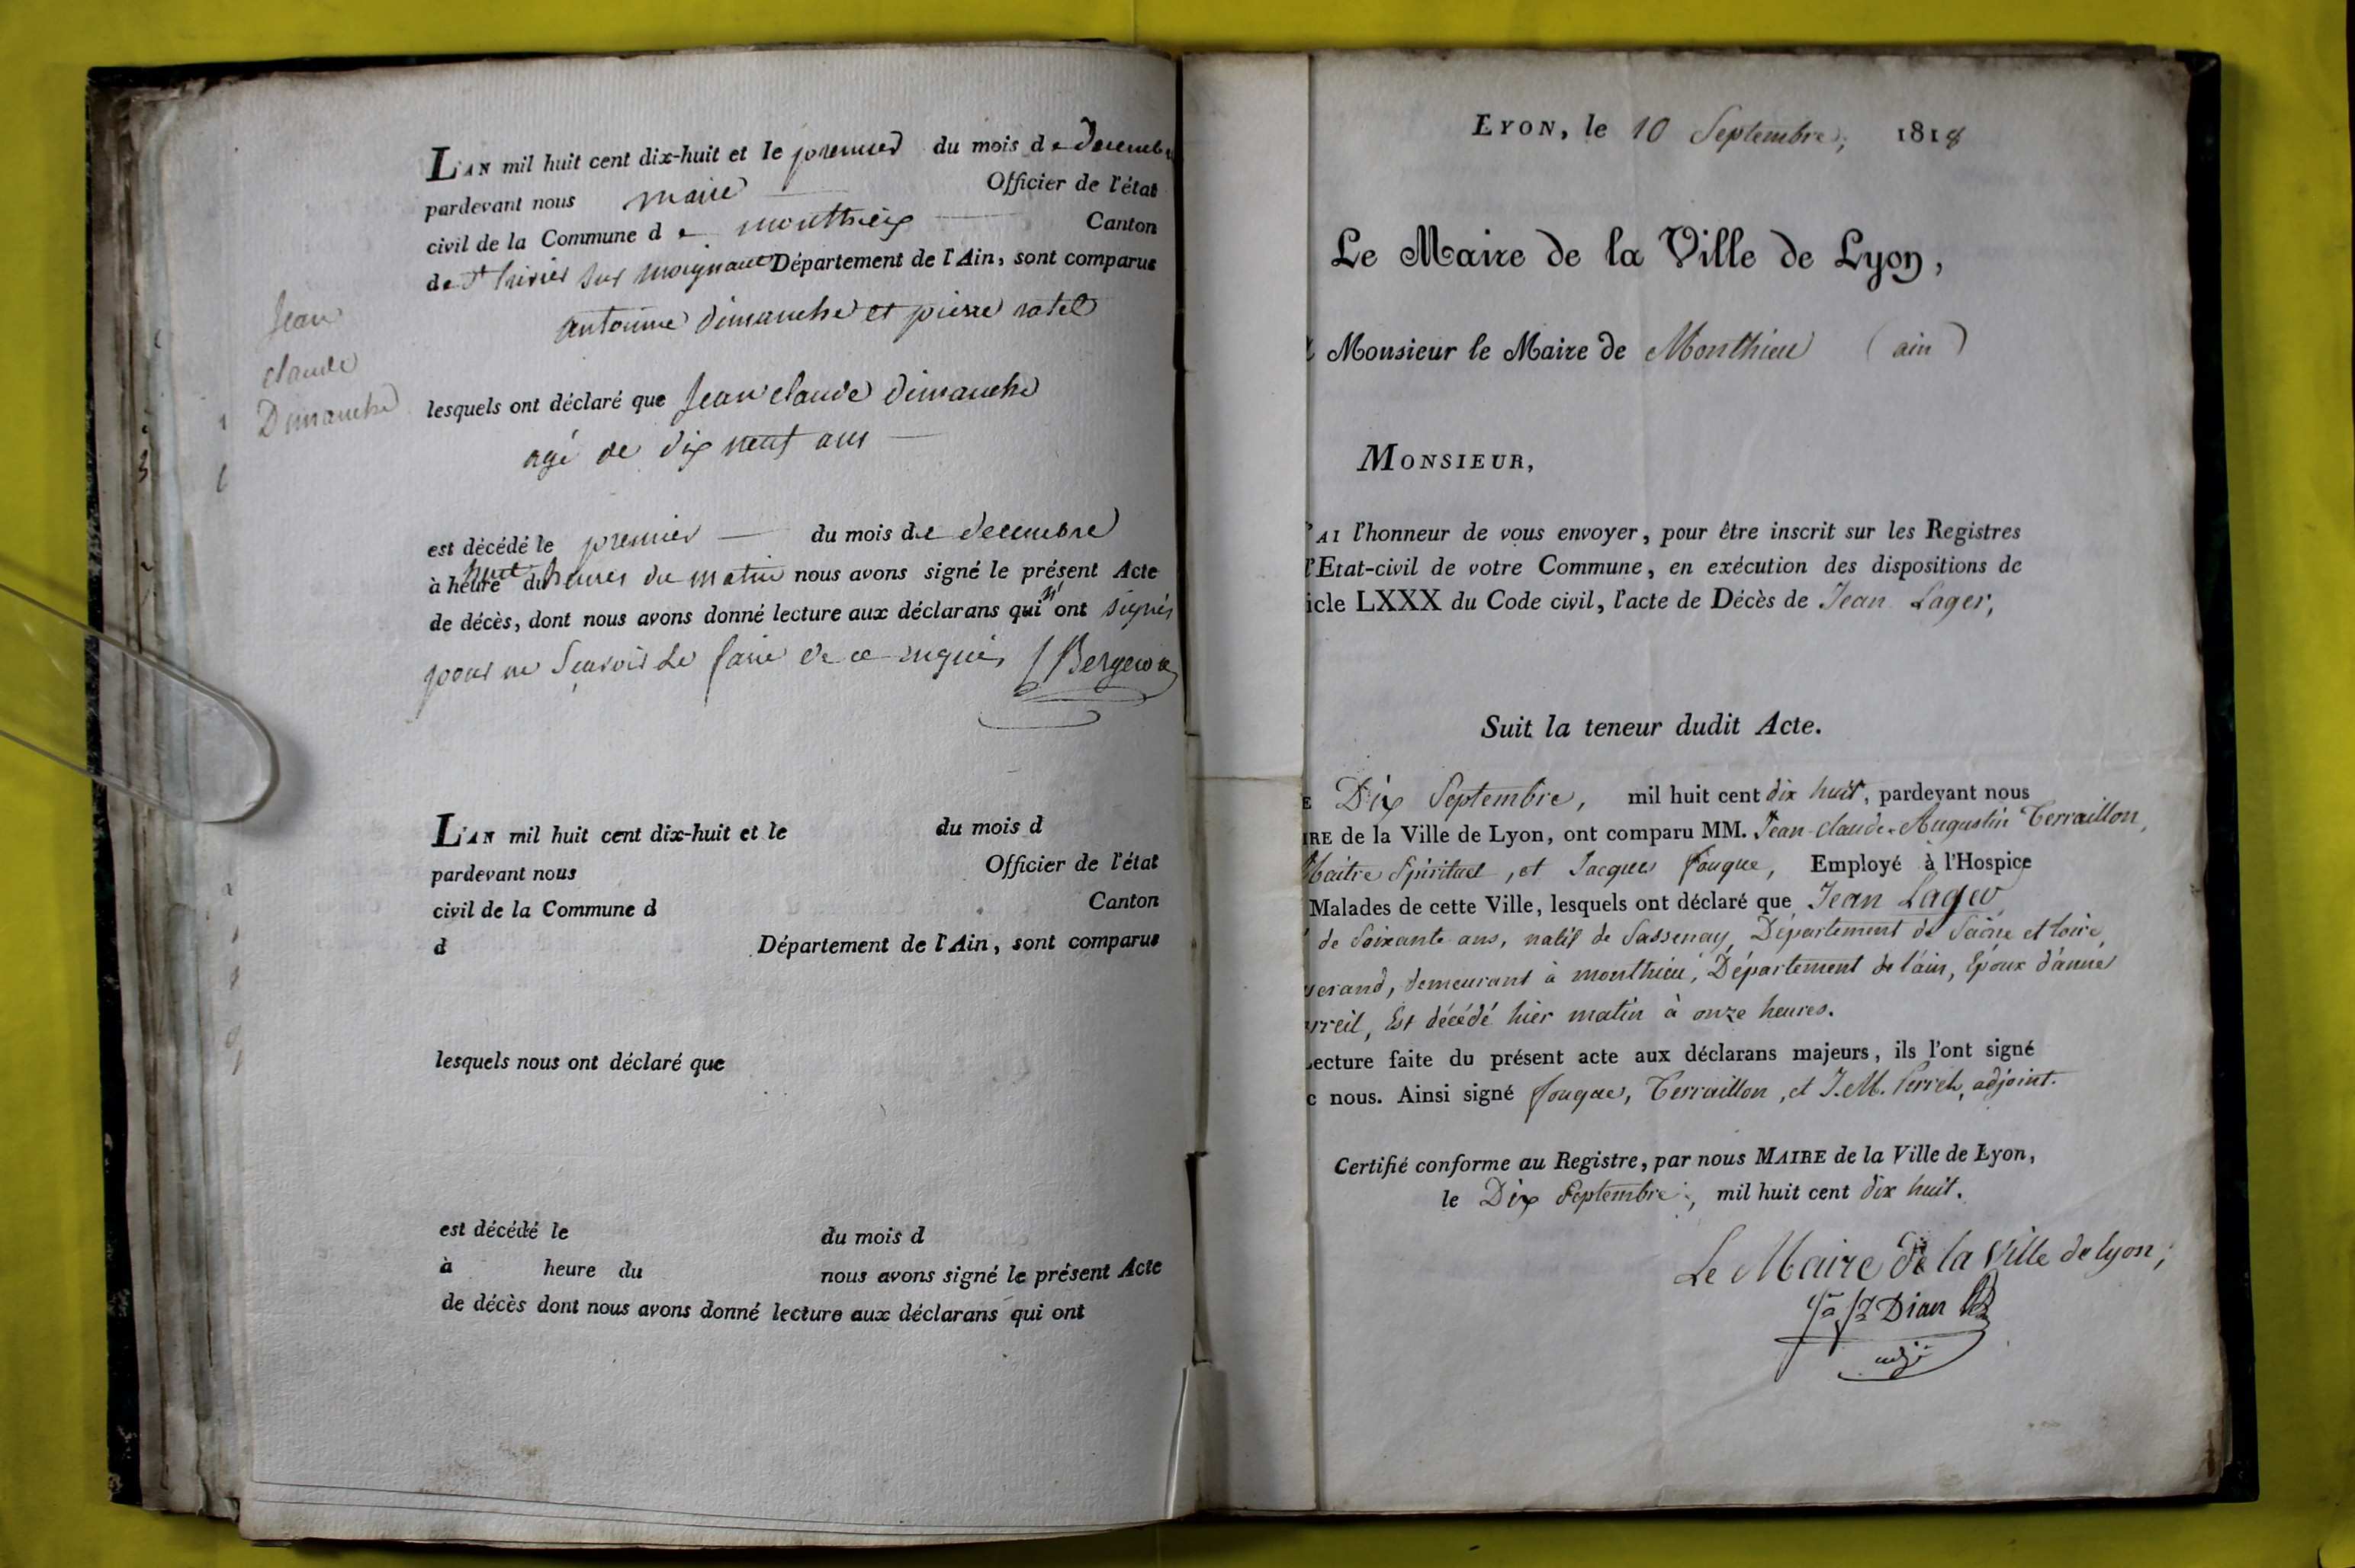 Jean
claude
Dimanche
L'AN mil huit cent dix-huit et le premier du mois de decembre
pardevant nous maire Officier de l'état
civil de la Commune de monthieux Canton
de St trivier sur moignans Département de l'Ain, sont comparus
antoinne dimanche et pierre ratel
lesquels ont déclaré que Jean claude dimanche
agé de dix neuf ans
est décédé le premier du mois de decembre
à heure du huit heures du matin nous avons signé le présent Acte
de décès, dont nous avons donné lecture aux déclarans qui n'ont signés
pour ne Scavoir le faire de ce requis
L'AN mil huit cent dix-huit et le du mois d
pardevant nous Officier de l'état
civil de la Commune d Canton
d Département de l'Ain, sont comparus
lesquels nous ont déclaré que
est décédé le du mois d
à heure du nous avons signé le présent Acte
de décès dont nous avons donné lecture aux déclarans qui ont
LYON, le 10 Septembre, 1818
Le Maire de la Ville de Lyon,
Monsieur le Maire de Monthieu (ain)
MONSIEUR,
'AI l'honneur de vous envoyer, pour être inscrit sur les Registres
l'Etat-civil de votre Commune, en exécution des dispositions de
icle LXXX du Code civil, l'acte de Décès de Jean Lager,
Suit la teneur dudit Acte.
E Dix Septembre, mil huit cent dix huit, pardevant nous
IRE de la Ville de Lyon, ont comparu MM. Jean-Claude-Augustin Terraillon,
Maitre Spirituel, et Jacques fougue, Employé à l'Hospice
Malades de cette Ville, lesquels ont déclaré que Jean Lager
de Soixante ans, natif de Sassenay, Département de Saône et loire,
gerand, demeurant à monthieu, Département de l'ain, Epoux d'anne
rreil, Est décédé hier matin à onze heures.
Lecture faite du présent acte aux déclarans majeurs, ils l'ont signé
c nous. Ainsi signé fougue, Terraillon, et J.M. Perret, adjoint.
Certifié conforme au Registre, par nous MAIRE de la Ville de Lyon,
le Dix Septembre, mil huit cent dix huit.
Le Maire de la Ville de lyon,
Dian
adj